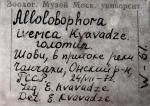 Зоолог. Музей Моск. университ.
Allolobophora
iverica Kvavadze
голотип
Шовы, в притоке реки
Чанчахи, Онский р-н
ГССР. 24/VII-73.
Leg E. Kvavadze.
Det. E. Kvavadze
W-61.